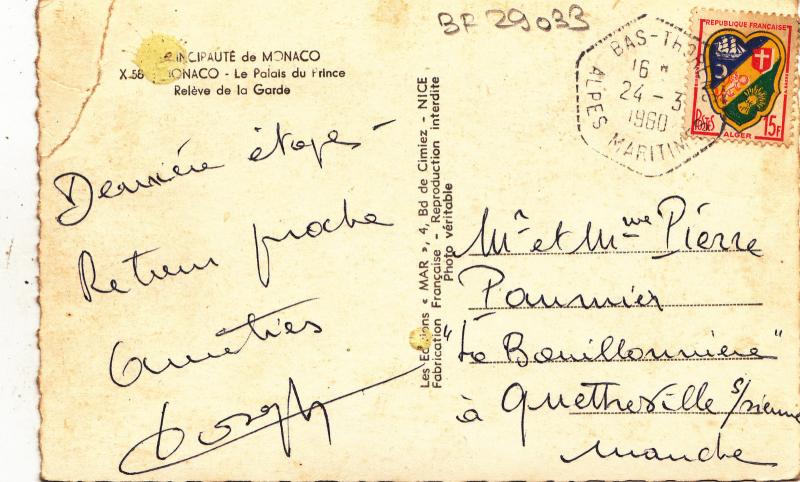 BF 29033
PRINCIPAUTÉ de MONACO
X.58 MONACO - Le Palais du Prince
Relève de la Garde
Dernière étape -
Retour proche
Amitiés
Joseph
Les Editions « MAR », 4, Bd de Cimiez - NICE
Fabrication Française - Reproduction interdite
Photo véritable
BAS-THOR
16 *
24 - 3
1960
ALPES MARITIMES
REPUBLIQUE FRANÇAISE
POSTES 15F
ALGER
Mr et Mme Pierre
Paumier
"La Bouillonnière"
à Quettreville s/sienne
Manche